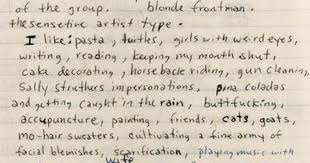 of the group.     blonde frontman.
the sensetive artist type.
I like: pasta, turtles, girls with weird eyes,
writing, reading, keeping my mouth shut,
cake decorating, horse back riding, gun cleaning,
Sally Struthers impersonations, pina coladas
and getting caught in the rain, buttfucking,
accupuncture, painting, friends, cats, goats,
mo-hair sweaters, cultivating a fine army of
facial blemishes, scarification, playing music with